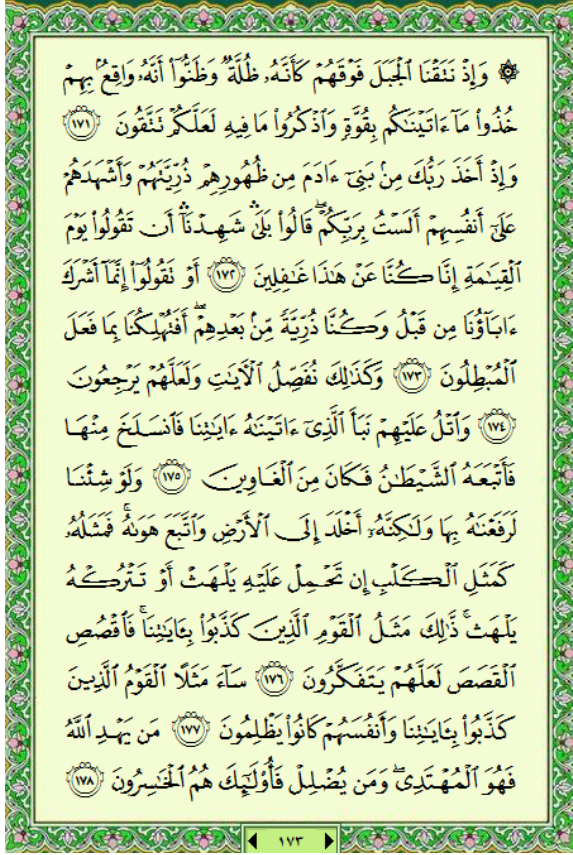 ۞ وَإِذْ نَتَقْنَا ٱلْجَبَلَ فَوْقَهُمْ كَأَنَّهُۥ ظُلَّةٌ وَظَنُّوٓا۟ أَنَّهُۥ وَاقِعٌۢ بِهِمْ
خُذُوا۟ مَآ ءَاتَيْنَٰكُم بِقُوَّةٍ وَٱذْكُرُوا۟ مَا فِيهِ لَعَلَّكُمْ تَتَّقُونَ ١٧١
وَإِذْ أَخَذَ رَبُّكَ مِنۢ بَنِىٓ ءَادَمَ مِن ظُهُورِهِمْ ذُرِّيَّتَهُمْ وَأَشْهَدَهُمْ
عَلَىٰٓ أَنفُسِهِمْ أَلَسْتُ بِرَبِّكُمْ ۖ قَالُوا۟ بَلَىٰ ۛ شَهِدْنَآ ۛ أَن تَقُولُوا۟ يَوْمَ
ٱلْقِيَٰمَةِ إِنَّا كُنَّا عَنْ هَٰذَا غَٰفِلِينَ ١٧٢ أَوْ تَقُولُوٓا۟ إِنَّمَآ أَشْرَكَ
ءَابَآؤُنَا مِن قَبْلُ وَكُنَّا ذُرِّيَّةً مِّنۢ بَعْدِهِمْ ۖ أَفَتُهْلِكُنَا بِمَا فَعَلَ
ٱلْمُبْطِلُونَ ١٧٣ وَكَذَٰلِكَ نُفَصِّلُ ٱلْءَايَٰتِ وَلَعَلَّهُمْ يَرْجِعُونَ
١٧٤ وَٱتْلُ عَلَيْهِمْ نَبَأَ ٱلَّذِىٓ ءَاتَيْنَٰهُ ءَايَٰتِنَا فَٱنسَلَخَ مِنْهَا
فَأَتْبَعَهُ ٱلشَّيْطَٰنُ فَكَانَ مِنَ ٱلْغَاوِينَ ١٧٥ وَلَوْ شِئْنَا
لَرَفَعْنَٰهُ بِهَا وَلَٰكِنَّهُۥٓ أَخْلَدَ إِلَى ٱلْأَرْضِ وَٱتَّبَعَ هَوَىٰهُ ۚ فَمَثَلُهُۥ
كَمَثَلِ ٱلْكَلْبِ إِن تَحْمِلْ عَلَيْهِ يَلْهَثْ أَوْ تَتْرُكْهُ
يَلْهَث ۚ ذَّٰلِكَ مَثَلُ ٱلْقَوْمِ ٱلَّذِينَ كَذَّبُوا۟ بِـَٔايَٰتِنَا ۚ فَٱقْصُصِ
ٱلْقَصَصَ لَعَلَّهُمْ يَتَفَكَّرُونَ ١٧٦ سَآءَ مَثَلًا ٱلْقَوْمُ ٱلَّذِينَ
كَذَّبُوا۟ بِـَٔايَٰتِنَا وَأَنفُسَهُمْ كَانُوا۟ يَظْلِمُونَ ١٧٧ مَن يَهْدِ ٱللَّهُ
فَهُوَ ٱلْمُهْتَدِى ۖ وَمَن يُضْلِلْ فَأُو۟لَٰٓئِكَ هُمُ ٱلْخَٰسِرُونَ ١٧٨
١٧٣